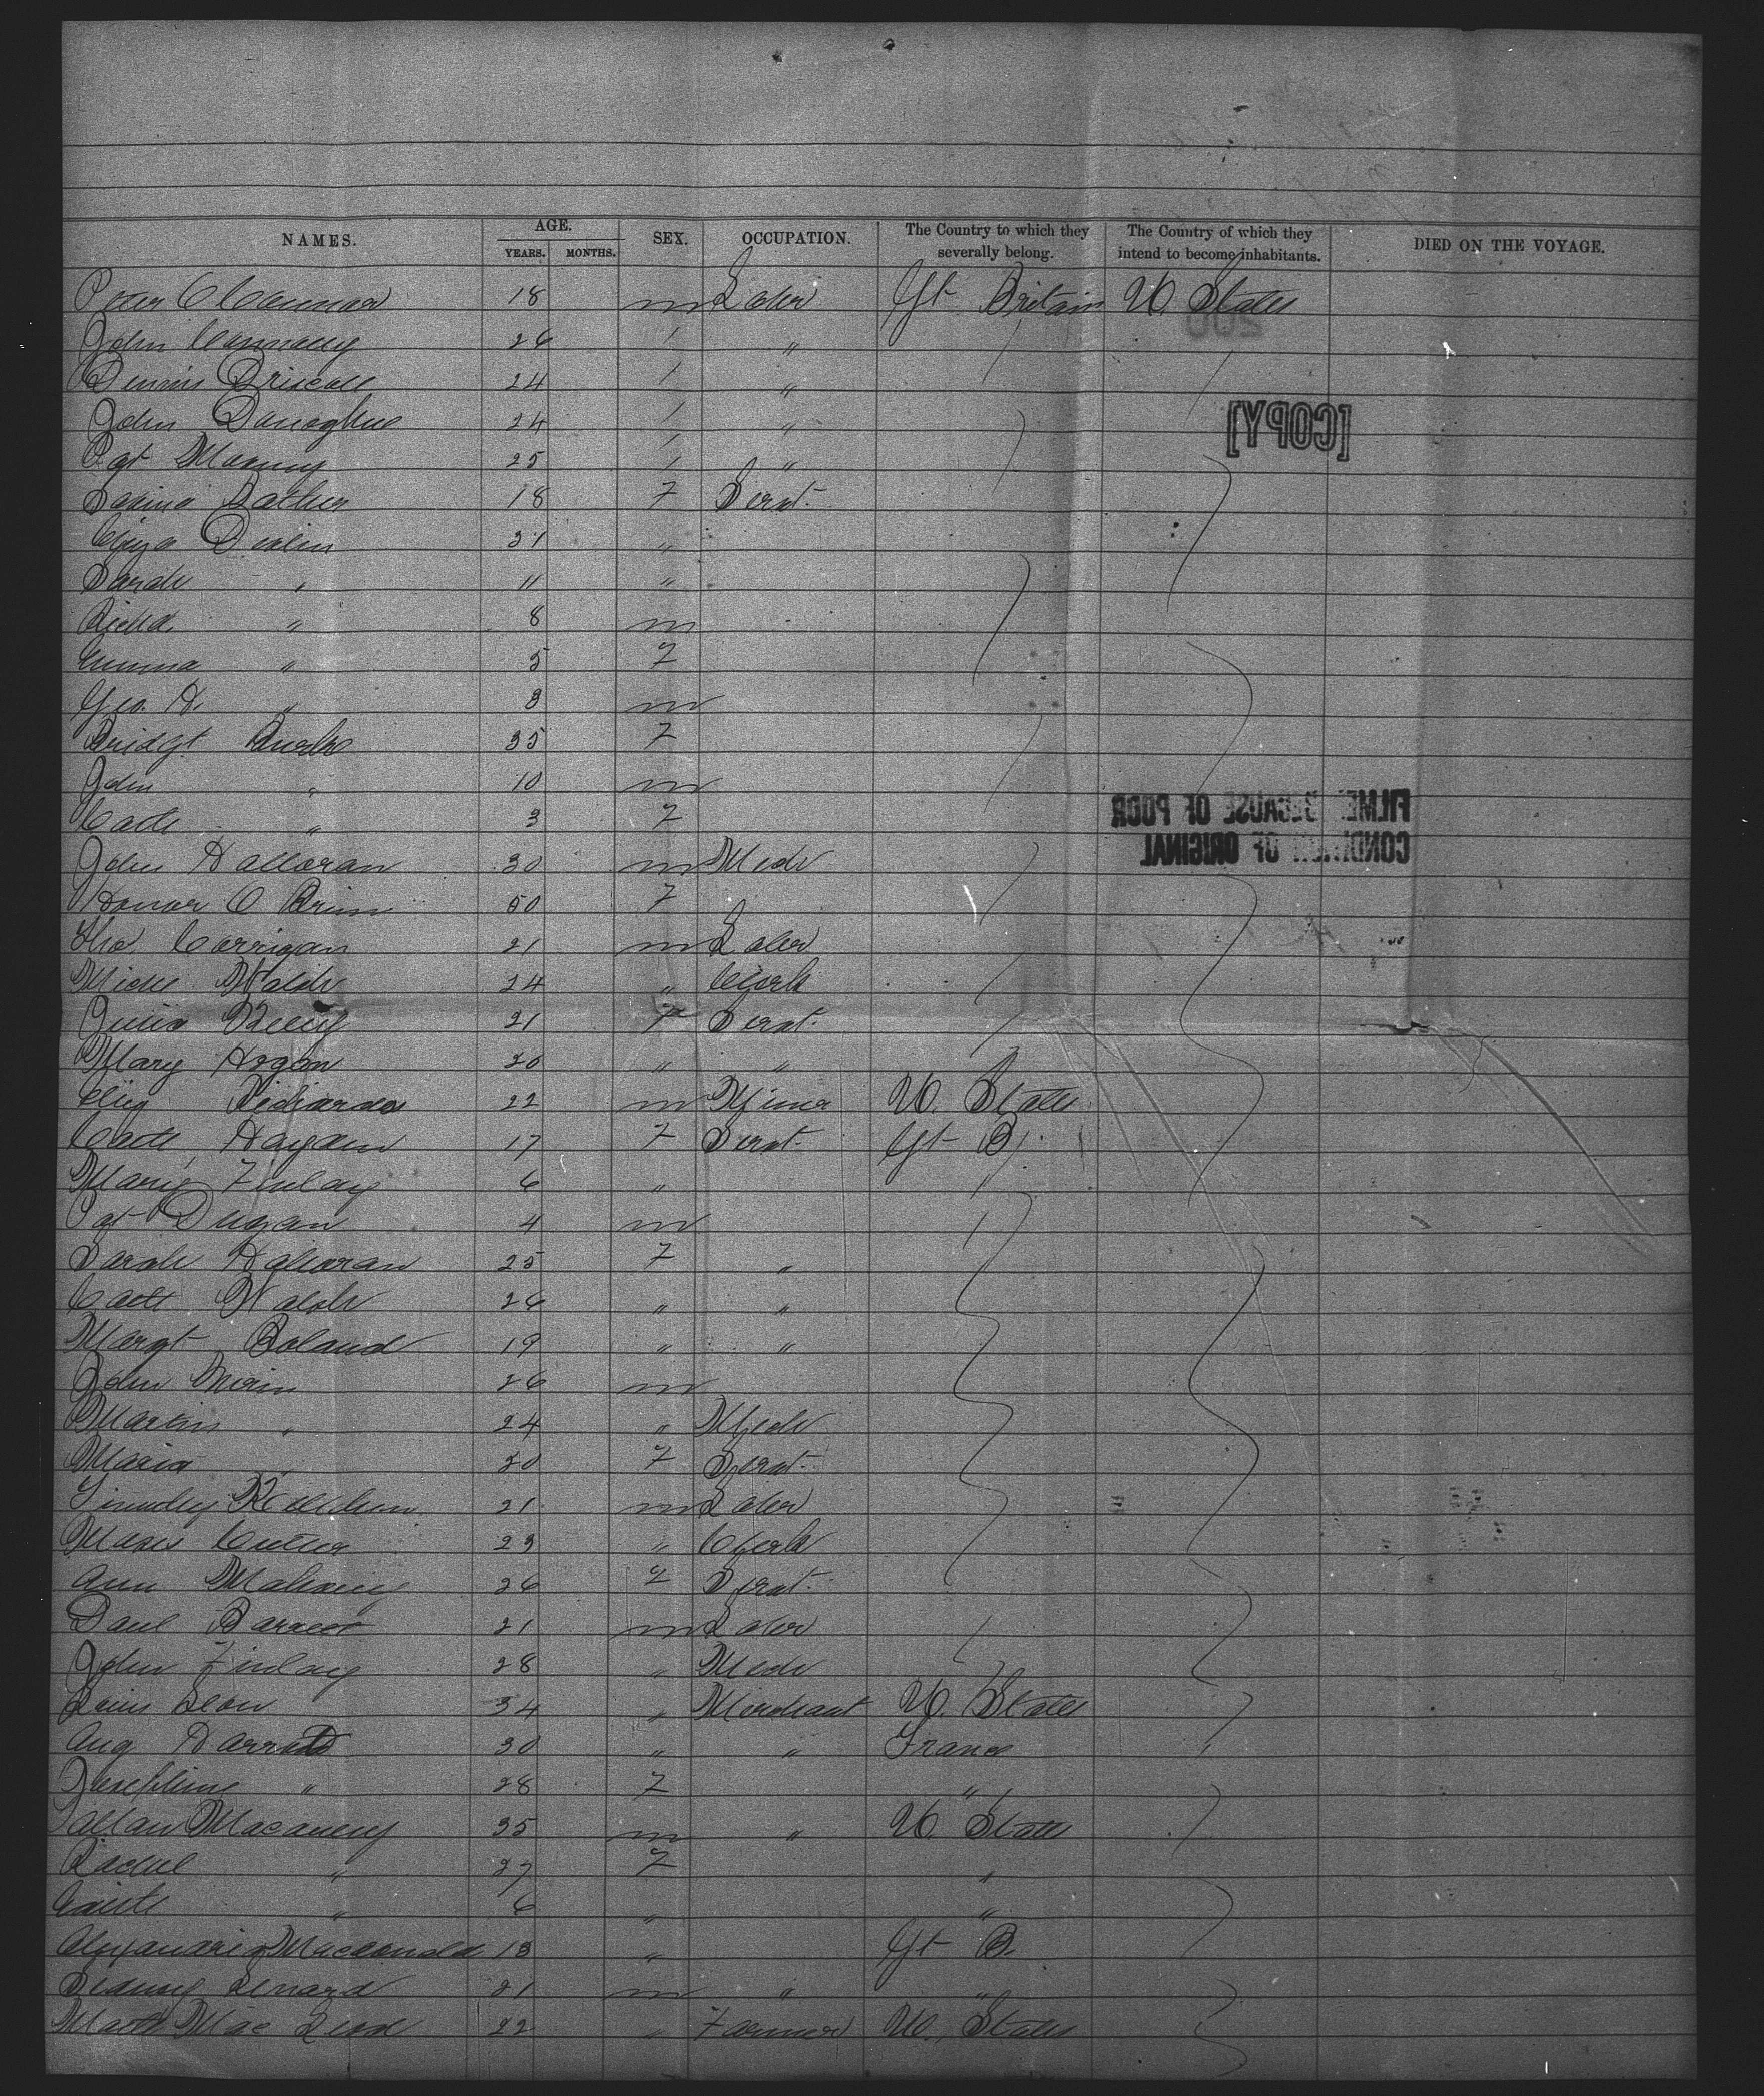 NAMES. AGE. YEARS. MONTHS. SEX. OCCUPATION. The Country to which they severally belong. The Country of which they intend to become inhabitants. DIED ON THE VOYAGE.
Peter O Connor 18 m Labr Gt Britain U. States
200
John 26 " 
Dennis Driscoll 24 "
John Donoghue 24 "
[COPY]
Pat 25 "
18 F Servt.
Eliza Devlin 31 "
Sarah " 11 "
Richd. " 8 m
Emma " 5 F
Geo. H. " 3 m
Bridgt Burke 35 F
John " 10 m
FILMED BECAUSE OF POOR
Cath " 3 F
CONDITION OF ORIGINAL
John Halloran 30 m Mech
Honor O Brien 50 F
Tho. Corrigan 21 m Labr
Michl Walsh 24 " Clerk
Julia Kelly 21 F Servt.
Mary Hogan 20 " "
Richards 22 m Miner U. States
Cath Hayden 17 F Servt. Gt B.
Mary Finlay 6 "
Pat Dugan 4 m
Sarah Halloran 25 F "
Cath Walsh 26 " "
Margt Boland 19 " "
John 26 m
Martin " 24 " Mech
Maria " 20 F Servt.
Timothy 21 m Labr
23 " Clerk
Ann Mahoney 26 F Servt.
Barrett 21 m Labr
John Finlay 28 " Mech
Louis Leon 34 " Merchant U. States
Aug 30 " " France
Josephine " 28 F "
Allan 35 m " U. States
Rachel " 27 F "
" 6 " "
Macdonald 13 " Gt B.
Sidney Lenard 21 m " "
22 " Farmer U. States